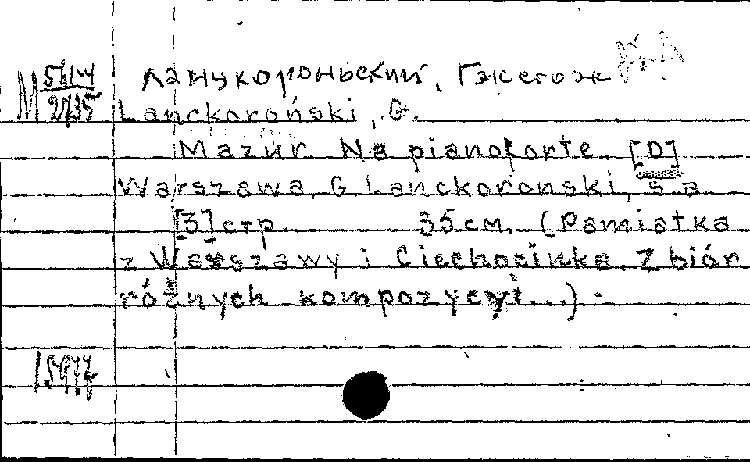 Ланцкороньский, Гжегож
Lanckoroński, G.
Mazur. Na pianoforte. [D]
Warszawa, G. Lanckoroński, s. a.
[3] стр. 35 см. (Pamiatka
z Warszawy i Ciechocinka. Zbiór
różnych kompozycyi...)